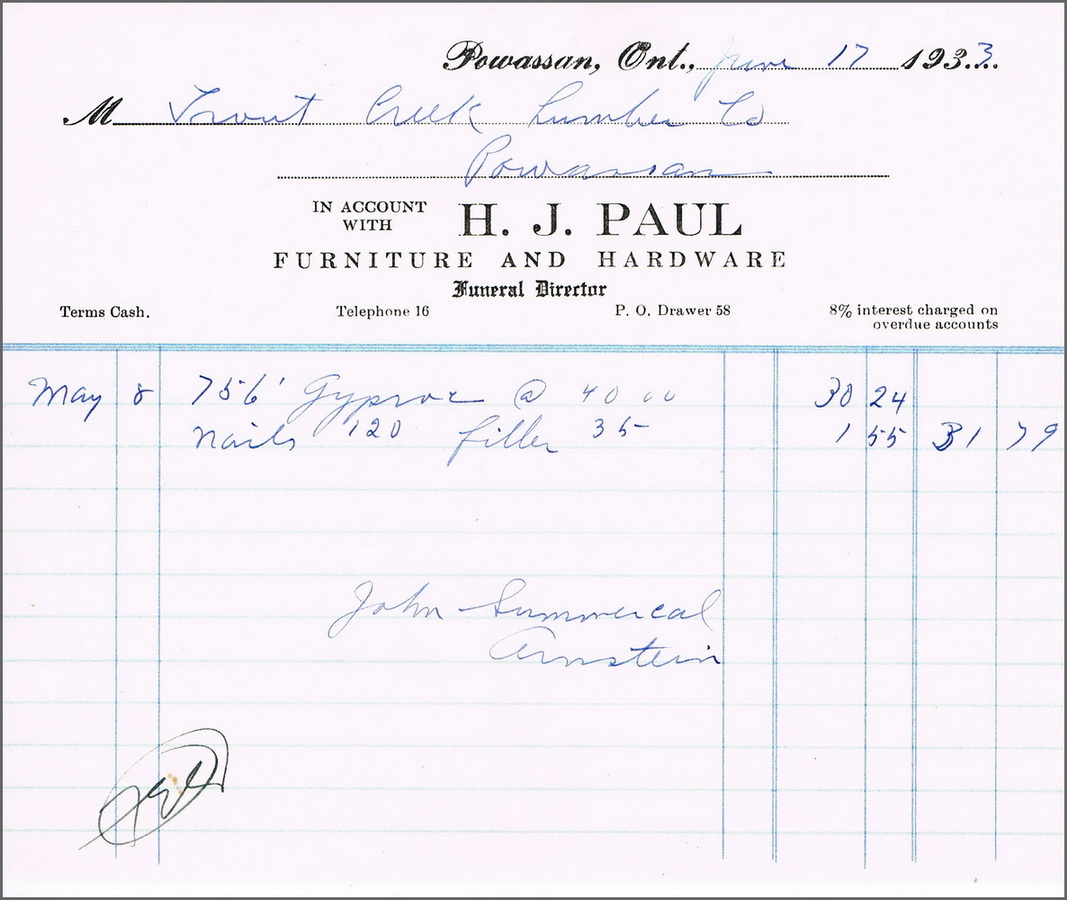 Powassan, Ont., June 17 1933
M Trout Creek Lumber Co
Powassan
IN ACCOUNT WITH H. J. PAUL
FURNITURE AND HARDWARE
Funeral Director
Terms Cash. Telephone 16 P. O. Drawer 58 8% interest charged on overdue accounts
May 8 756' Gyproc @ 40 00 30 24
nails 120 filler 35 1 55 31 79
John Summercal
Arnstein